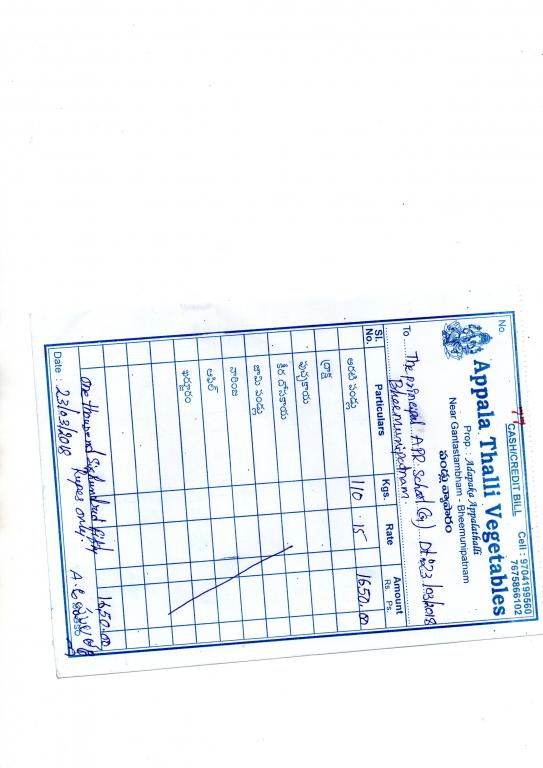 No. 77 CASH/CREDIT BILL Cell : 9704199560
7675866102
Appala Thalli Vegetables
Prop. : Adapaka Appalathalli
పండ్లు వ్యాపారం
Near Gantastambham - Bheemunipatnam
To The principal APR School (G) Dt: 23/03/2018
Bheemunipatnam.
Sl. No. Particulars Kgs. Rate Amount Rs. Ps.
అరటి పండ్లు 110 15 1650.00
ద్రాక్ష
పుచ్చకాయ
కీర దోసకాయ
జామి పండ్లు
నారింజ
ఆపిల్
ఖర్జూరం
1650.00
One thousand Six hundred fifty
Rupes only.
Date : 23/03/2018